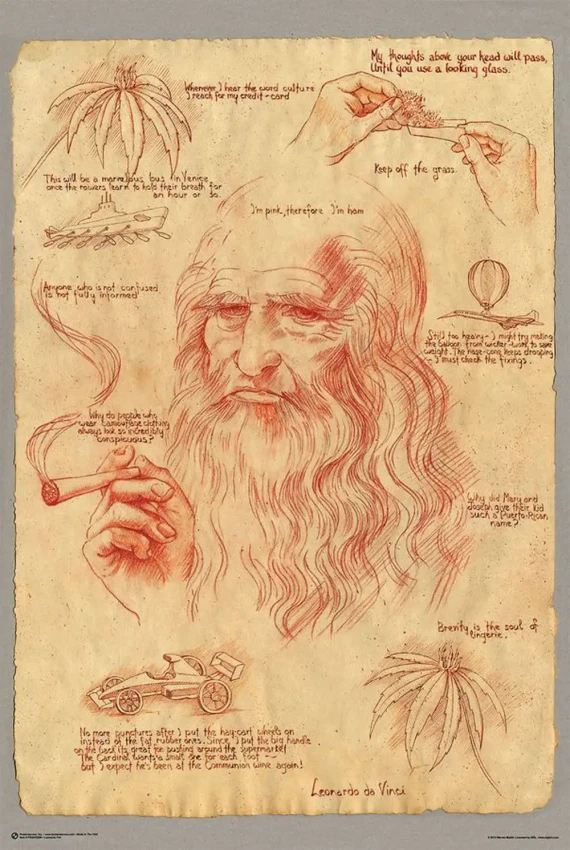 My thoughts above your head will pass,
Until you use a looking glass.
Whenever I hear the word culture
I reach for my credit-card
Keep off the grass.
This will be a marvelous bus in Venice
once the rowers learn to hold their breath for
an hour or so.
I'm pink, therefore I'm ham
Anyone who is not confused
is not fully informed
Still too heavy - I might try making
the balloon from wicker-work to save
weight. The nose-cone keeps drooping
- I must check the fixings.
Why do people who
wear camouflage clothing
always look so incredibly
conspicuous?
Why did Mary and
Joseph give their kid
such a Puerto-Rican
name?
Brevity is the soul of
lingerie.
No more punctures after I put the hay-cart wheels on
instead of the fat rubber ones. Since I put the big handle
on the back its great for pushing around the supermarket
The Cardinal wants a small one for each foot -
but I expect he's been at the Communion wine again!
Leonardo da Vinci